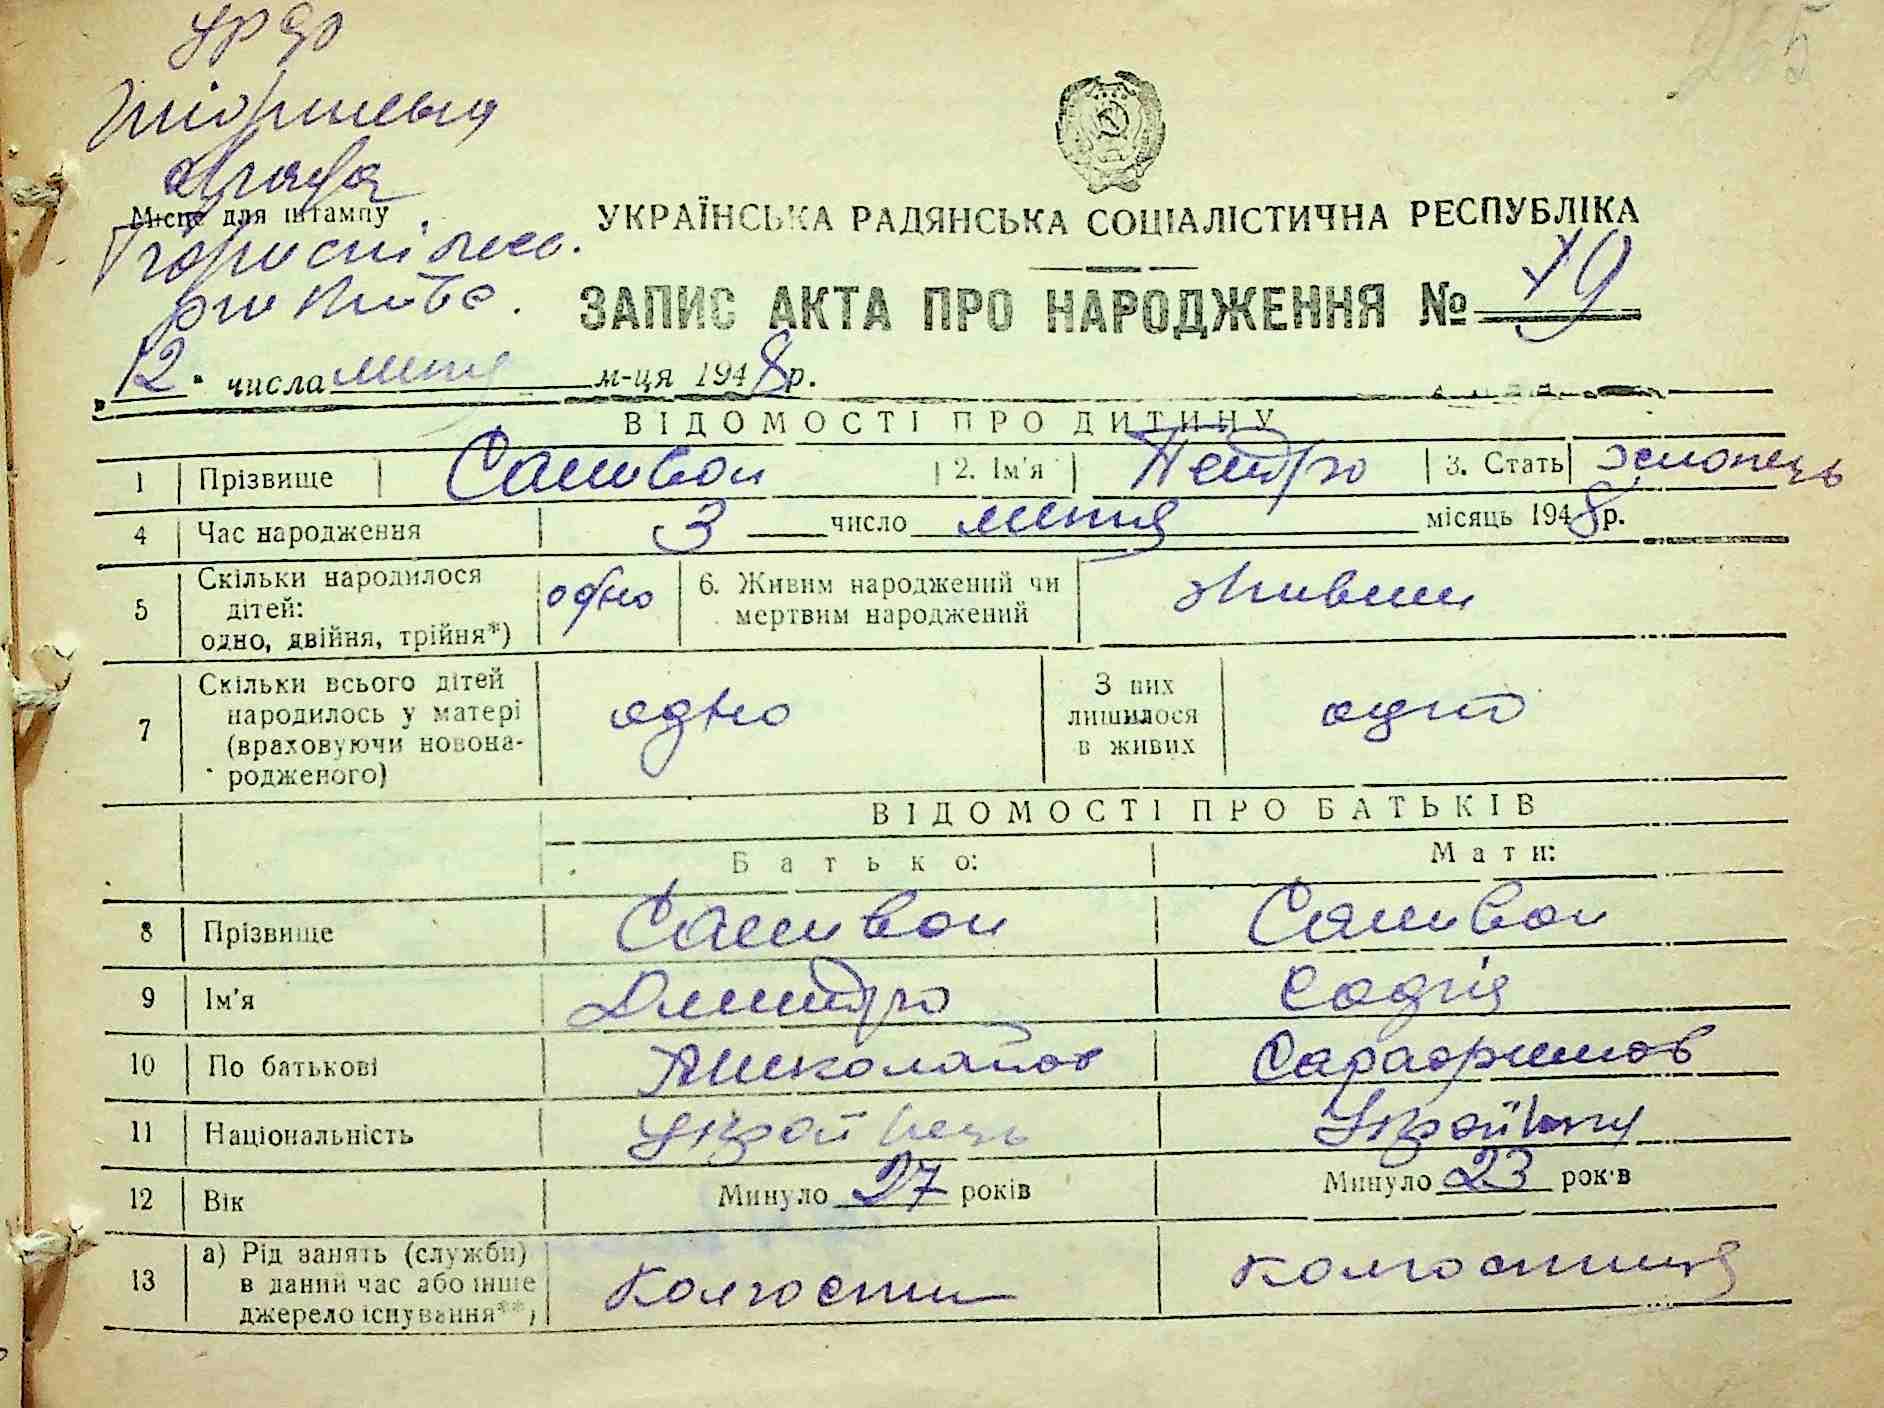 УРСР
265
Місце для штампу
УКРАЇНСЬКА РАДЯНСЬКА СОЦІАЛІСТИЧНА РЕСПУБЛІКА
ЗАПИС АКТА ПРО НАРОДЖЕННЯ №
12 " числа липня м-ця 1948 р.
ВІДОМОСТІ ПРО ДИТИНУ
1 Прізвище Самвон 2. Ім'я Петро 3. Стать хлопець
4 Час народження 3 число липня місяць 1948 р.
5 Скільки народилося дітей: одно, двійня, трійня*) одно 6. Живим народжений чи мертвим народжений живим
7 Скільки всього дітей народилось у матері (враховуючи новонародженого) одно З них лишилося в живих одно
ВІДОМОСТІ ПРО БАТЬКІВ
Батько: Мати:
8 Прізвище Самвон Самвон
9 Ім'я Дмитро Софія
10 По батькові Миколайов
11 Національність Українець Українка
12 Вік Минуло 27 років Минуло 23 років
13 а) Рід занять (служби) в даний час або інше джерело існування**) Колгоспник колгоспниця